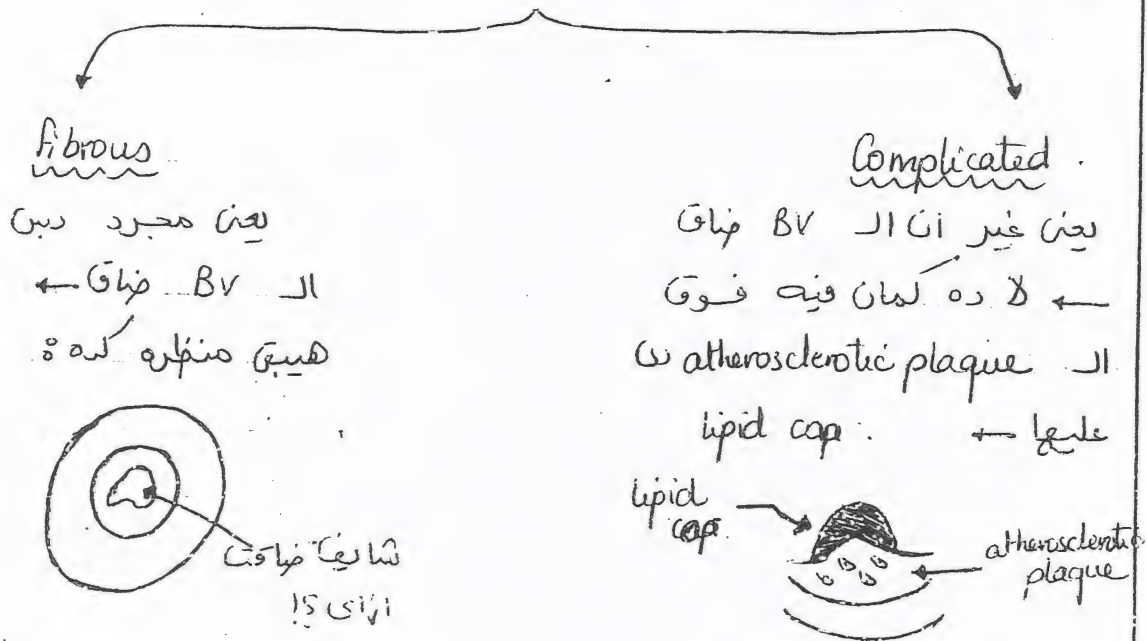 Fibrous
يعنى مجرد بس
الـ BV ضاق ←
هيبقى منظره كده :
شايف ضاقت
ازاى ؟!
Complicated .
يعنى غير ان الـ BV ضاق
← لا ده كمان فيه فوق
الـ atherosclerotic plaque
عليها ← lipid cap .
lipid
cap
atherosclerotic
plaque